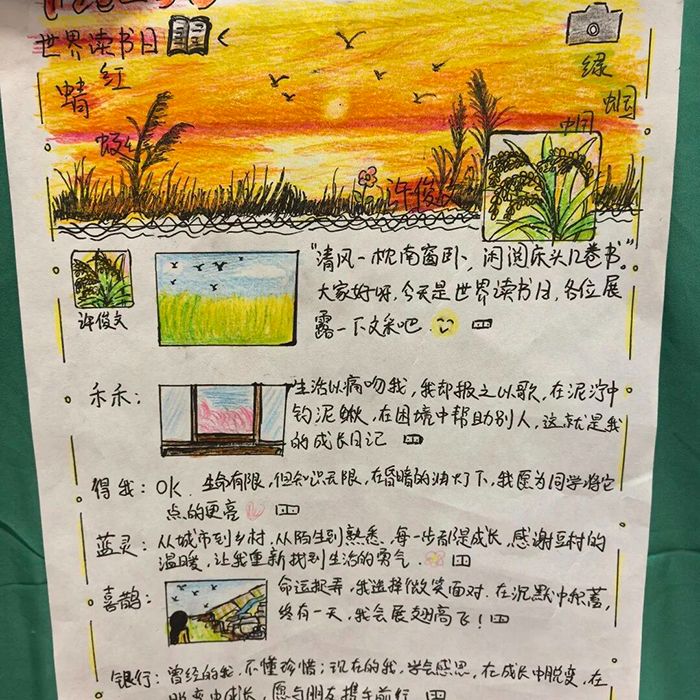 世界读书日
红
蜻
绿
蝈
蝈
许俊文
"清风一枕南窗卧，闲阅床头几卷书。"
大家好呀，今天是世界读书日，各位展
露一下文采吧
许俊文
禾禾：
生活以痛吻我，我却报之以歌，在泥泞中
钓泥鳅，在困境中帮助别人，这就是我
的成长日记
得我：OK 生命有限，但知识无限，在昏暗的油灯下，我愿为同学将它
点的更亮
蓝灵：从城市到乡村，从陌生到熟悉，每一步都是成长，感谢豆村的
温暖，让我重新找到生活的勇气。
喜鹊：
命运捉弄，我选择微笑面对，在沉默中积蓄，
终有一天，我会展翅高飞！
银行：曾经的我，不懂珍惜；现在的我，学会感恩，在成长中脱变，在
脱变中成长，愿与朋友携手前行